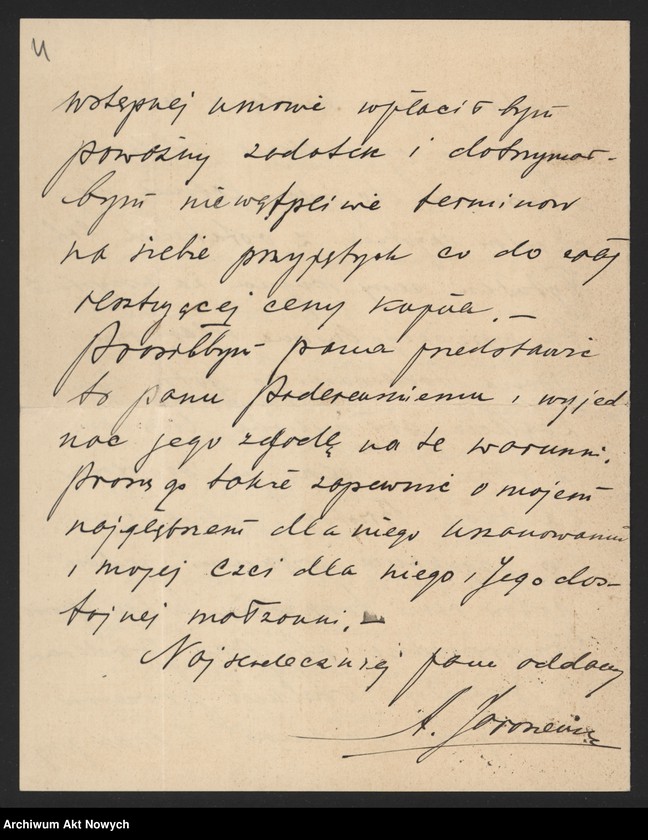 4
wstępnej umowie wpłacił bym
poważny zadatek i dotrzymał-
bym niewątpliwie terminów
na siebie przyjętych co do całej
resztującej ceny kupna. —
Prosiłbym pana przedstawić
to panu Paderewskiemu i wyjed-
nać jego zgodę na te warunki.
Proszę go także zapewnić o mojem
najgłębszem dla niego uszanowaniu
i mojej czci dla niego i Jego dos-
tojnej małżonki. —
Najserdeczniej panu oddany
A.
Archiwum Akt Nowych